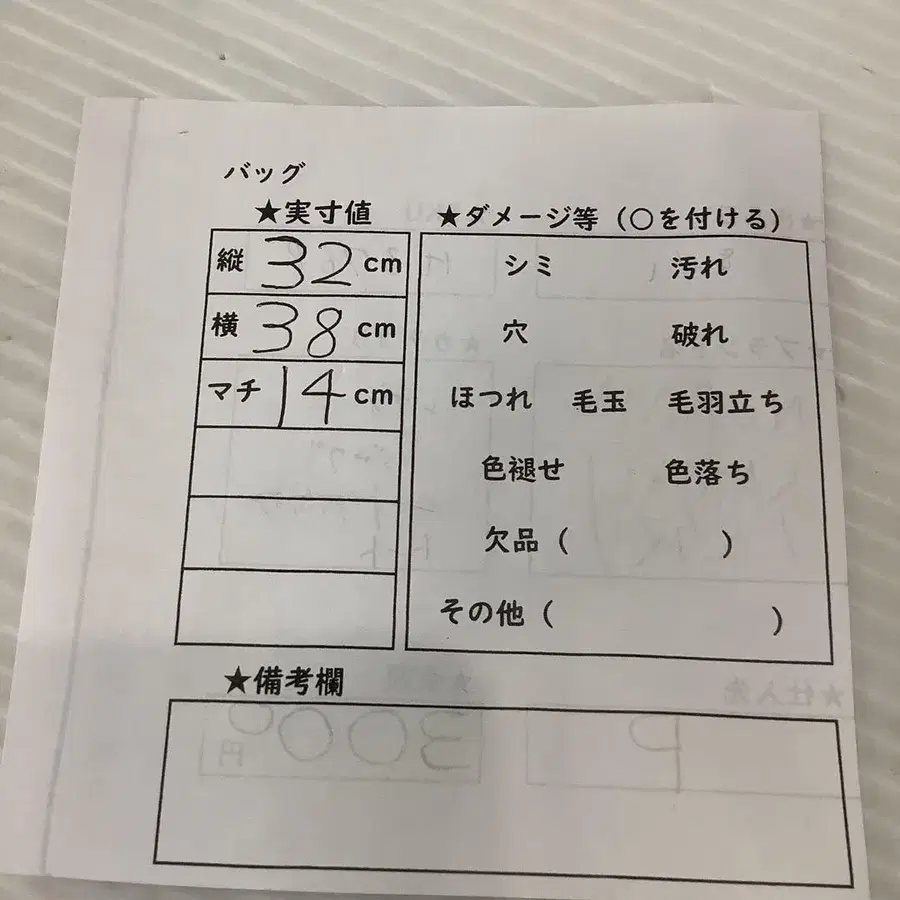 バッグ
★実寸値
縦 32 cm
横 38 cm
マチ 14 cm
★ダメージ等（○を付ける）
シミ 汚れ
穴 破れ
ほつれ 毛玉 毛羽立ち
色褪せ 色落ち
欠品（ ）
その他（ ）
★備考欄